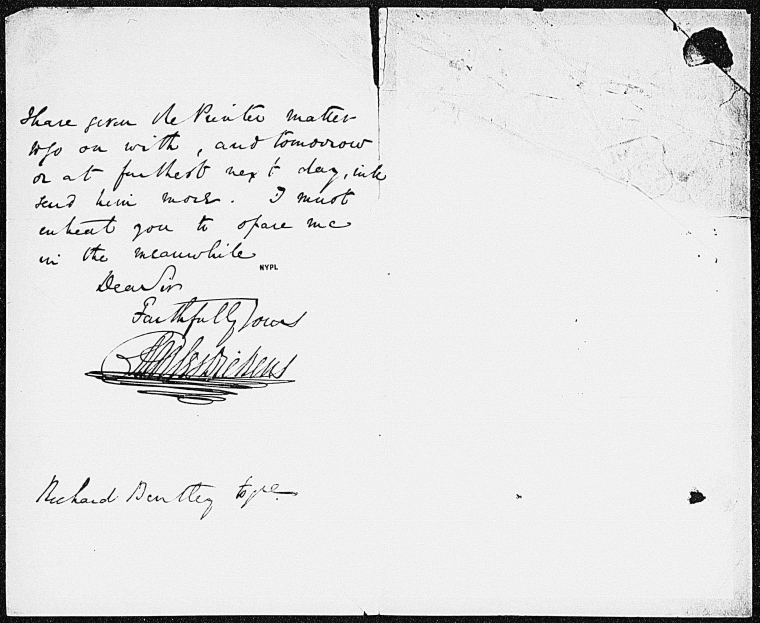 I have given the Printer matter
to go on with, and tomorrow
or at furthest next day, will
send him more. I must
entreat you to spare me
in the meanwhile
NYPL
Dear Sir
Faithfully Yours
Charles Dickens
Richard Bentley Esqre.